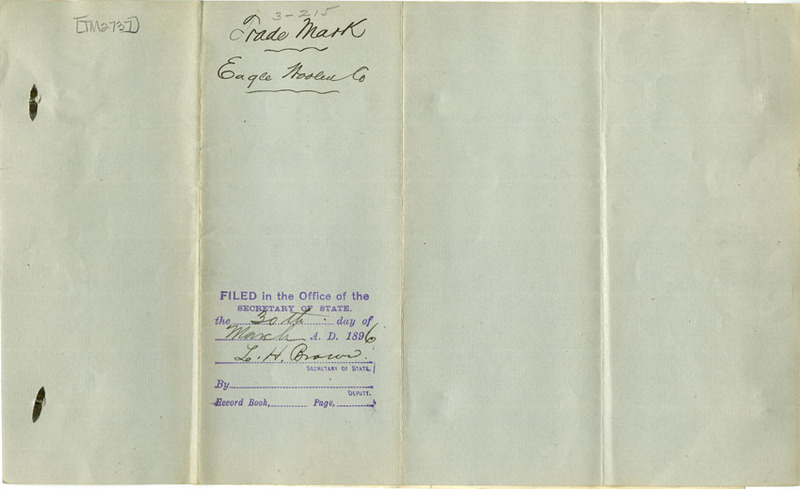 [TM2737]
3-215
Trade Mark
Eagle Woolen Co
FILED in the Office of the
SECRETARY OF STATE,
the 30th day of
March A. D. 1896
L. H. Brown
SECRETARY OF STATE.
By
DEPUTY.
Record Book, Page,